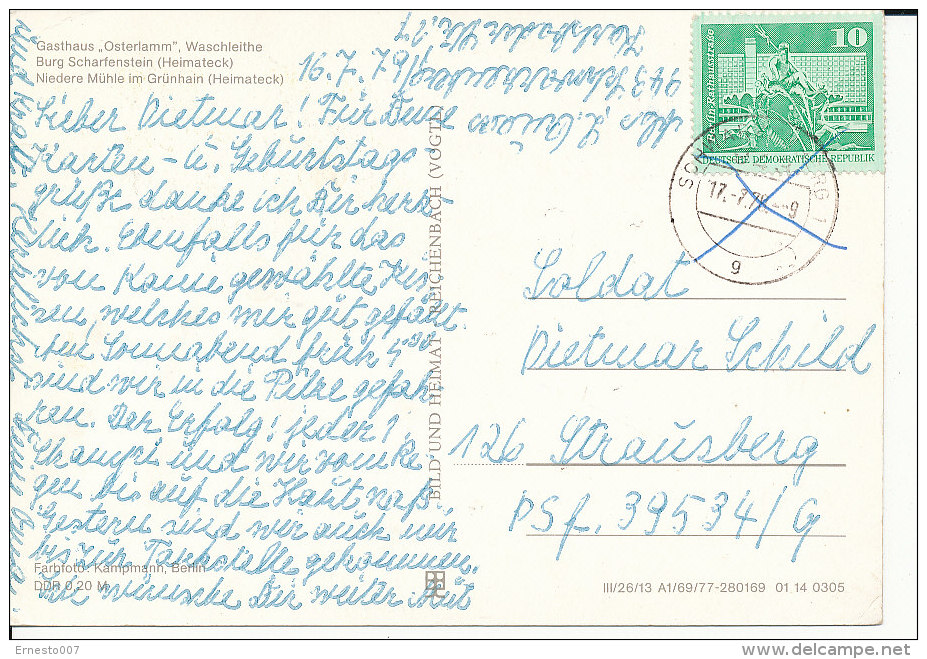 Gasthaus „Osterlamm”, Waschleithe
Burg Scharfenstein (Heimateck)
Niedere Mühle im Grünhain (Heimateck)
16. 7.
Lieber Dietmar! Für Deine
Karten- u. Geburtstags-
grüße danke ich Dir herz-
lich. Ebenfalls für das
von Karin gewählte Kis-
sen, welches mir gut gefällt.
Am Sonnabend früh 4³⁰
sind wir in die Pilze gefah-
ren. Der Erfolg: jeder 1
und wir vom Re
gen bis auf die Haut naß.
Gestern sind wir auch nur
bis zur gekommen.
Wir wünsche Dir weiter Mut
Farbfoto: Kampmann, Berlin
DDR 0,20 M
BILD UND HEIMAT REICHENBACH (VOGTL)
Abs.
943 Schwarzenberg
Karlsbader Str. 27
10
DEUTSCHE DEMOKRATISCHE REPUBLIK
17.-7.
9
Soldat
Dietmar Schild
126 Strausberg
PSf. 39534/G
III/26/13 A1/69/77-280169 01 14 0305
Ernesto007
www.delcampe.net